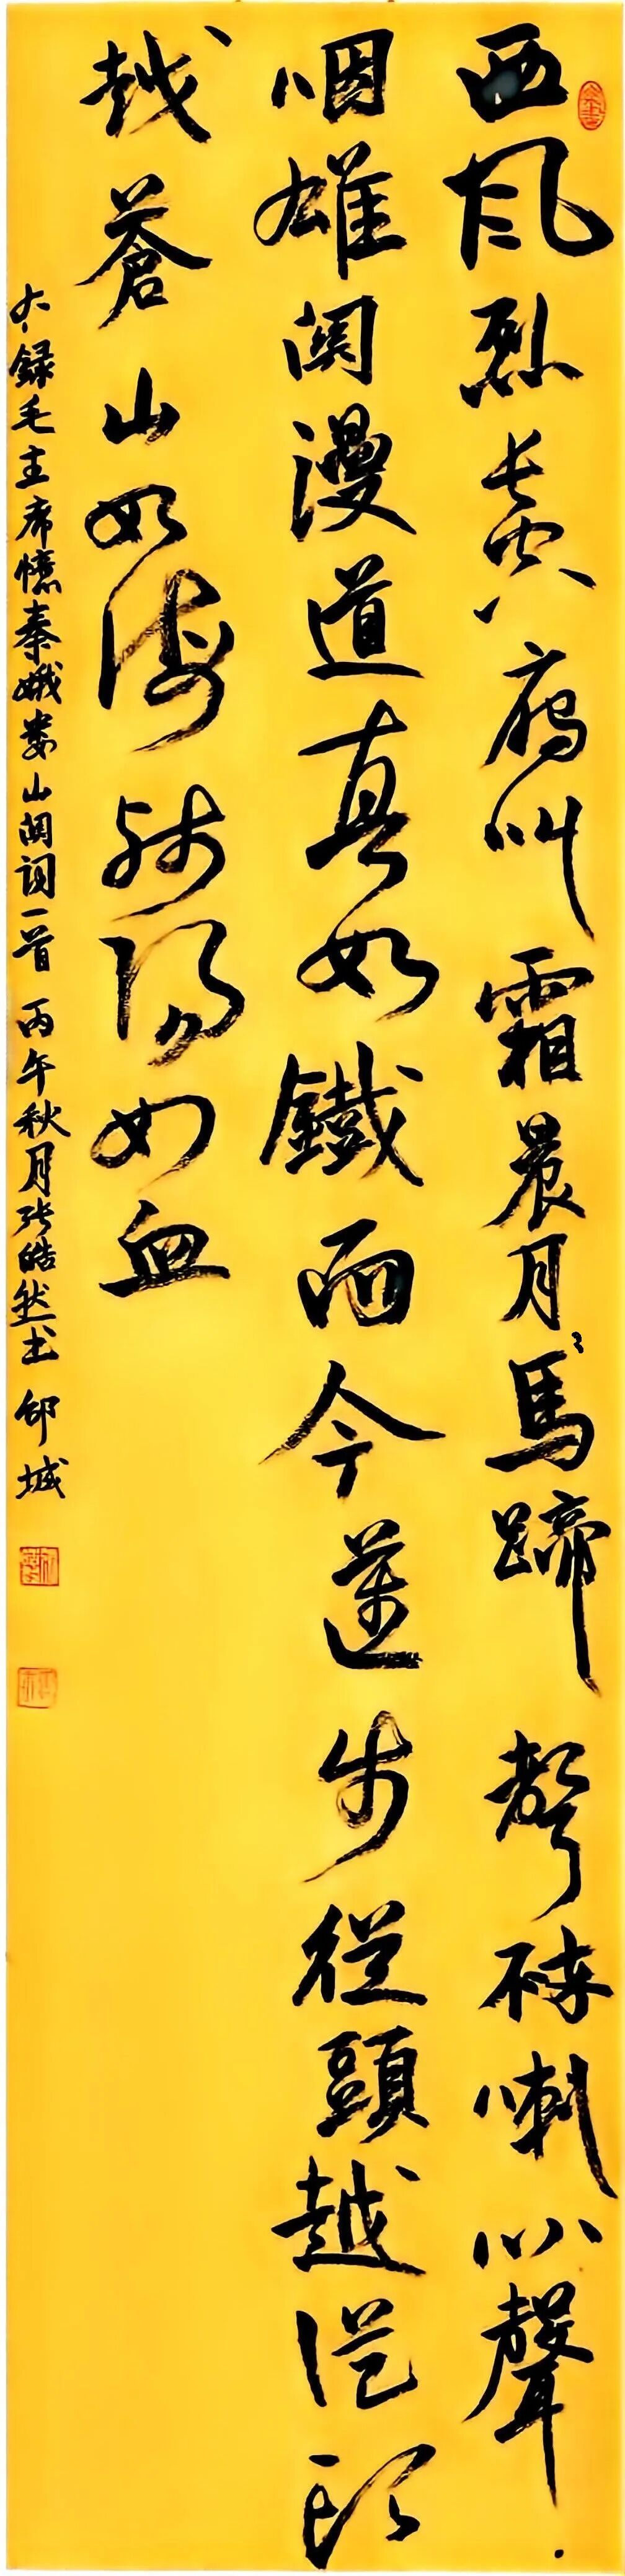 西風烈長空雁叫霜晨月〻馬蹄聲碎喇叭聲
咽雄関漫道真如鐵而今邁步從頭越從頭
越蒼山如海殘陽如血
右録毛主席憶秦娥婁山関詞一首 丙午秋月張皓然书 邗城